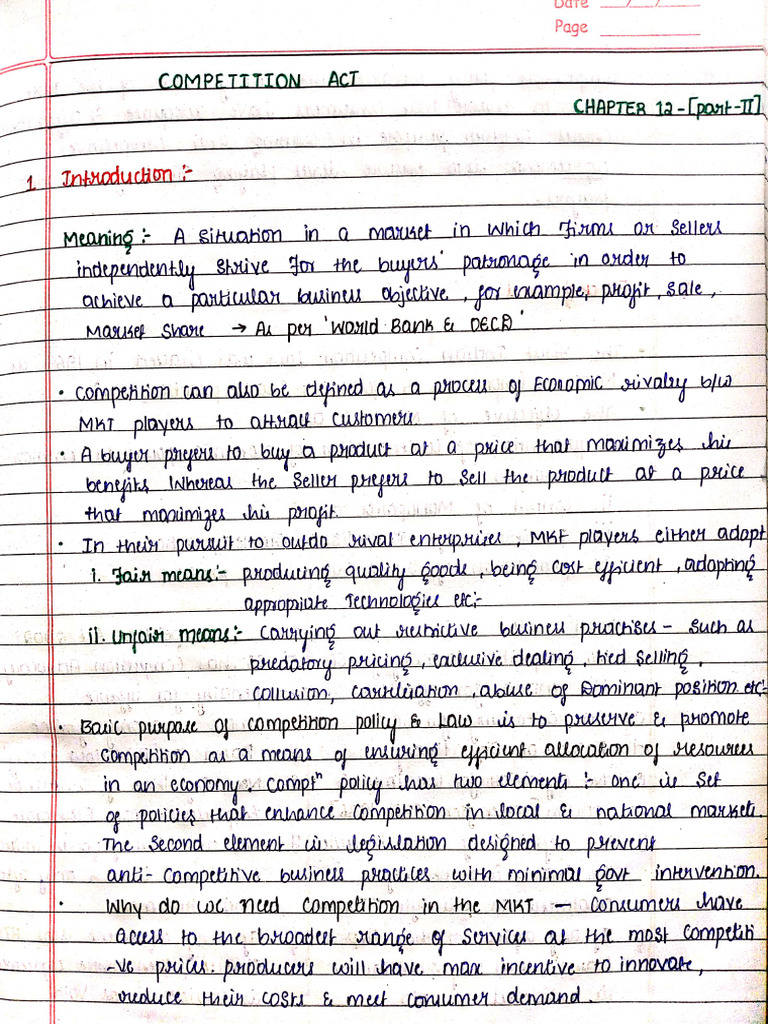 Date / /
Page
COMPETITION ACT
CHAPTER 12-[part-II]
1. Introduction :-
Meaning :- A situation in a market in which Firms or Sellers
independently strive for the buyers' patronage in order to
achieve a particular business objective, for example, profit, sale,
Market Share → As per 'World Bank & OECD'
• Competition can also be defined as a process of Economic rivalry b/w
MKT players to attract customers
• A buyer prefers to buy a product at a price that maximizes his
benefits whereas the seller prefers to sell the product at a price
that maximizes his profit.
• In their pursuit to outdo rival enterprises, MKT players either adopt
i. Fair means :- producing quality goods, being cost efficient, adopting
appropriate Technologies etc;-
ii. Unfair means :- Carrying out restrictive business practises - such as
predatory pricing, exclusive dealing, tied selling,
collusion, cartelization, abuse of Dominant position. etc:-
• Basic purpose of competition policy & Law is to preserve & promote
competition as a means of ensuring efficient allocation of resources
in an economy. Compt^n policy has two elements :- one is set
of policies that enhance competition in local & national markets.
The second element is legislation designed to prevent
anti-competitive business practices with minimal govt intervention.
• Why do we need competition in the MKT — Consumers have
access to the broadest range of services at the most competiti
-ve prices. producers will have max incentive to innovate,
reduce their costs & meet consumer demand.